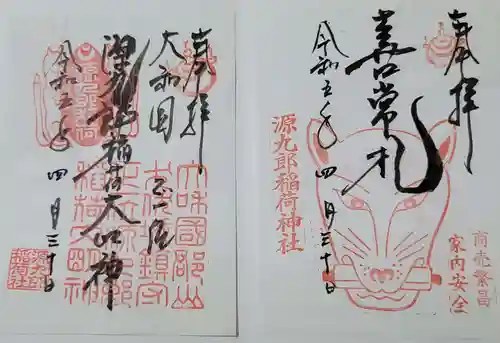 奉拝
大和国
正一位
源九郎稲荷大明神
令和五年四月三十日
源九郎稲荷社
奉拝
喜常札
令和五年四月三十日
源九郎稲荷神社
商売繁昌
家内安全